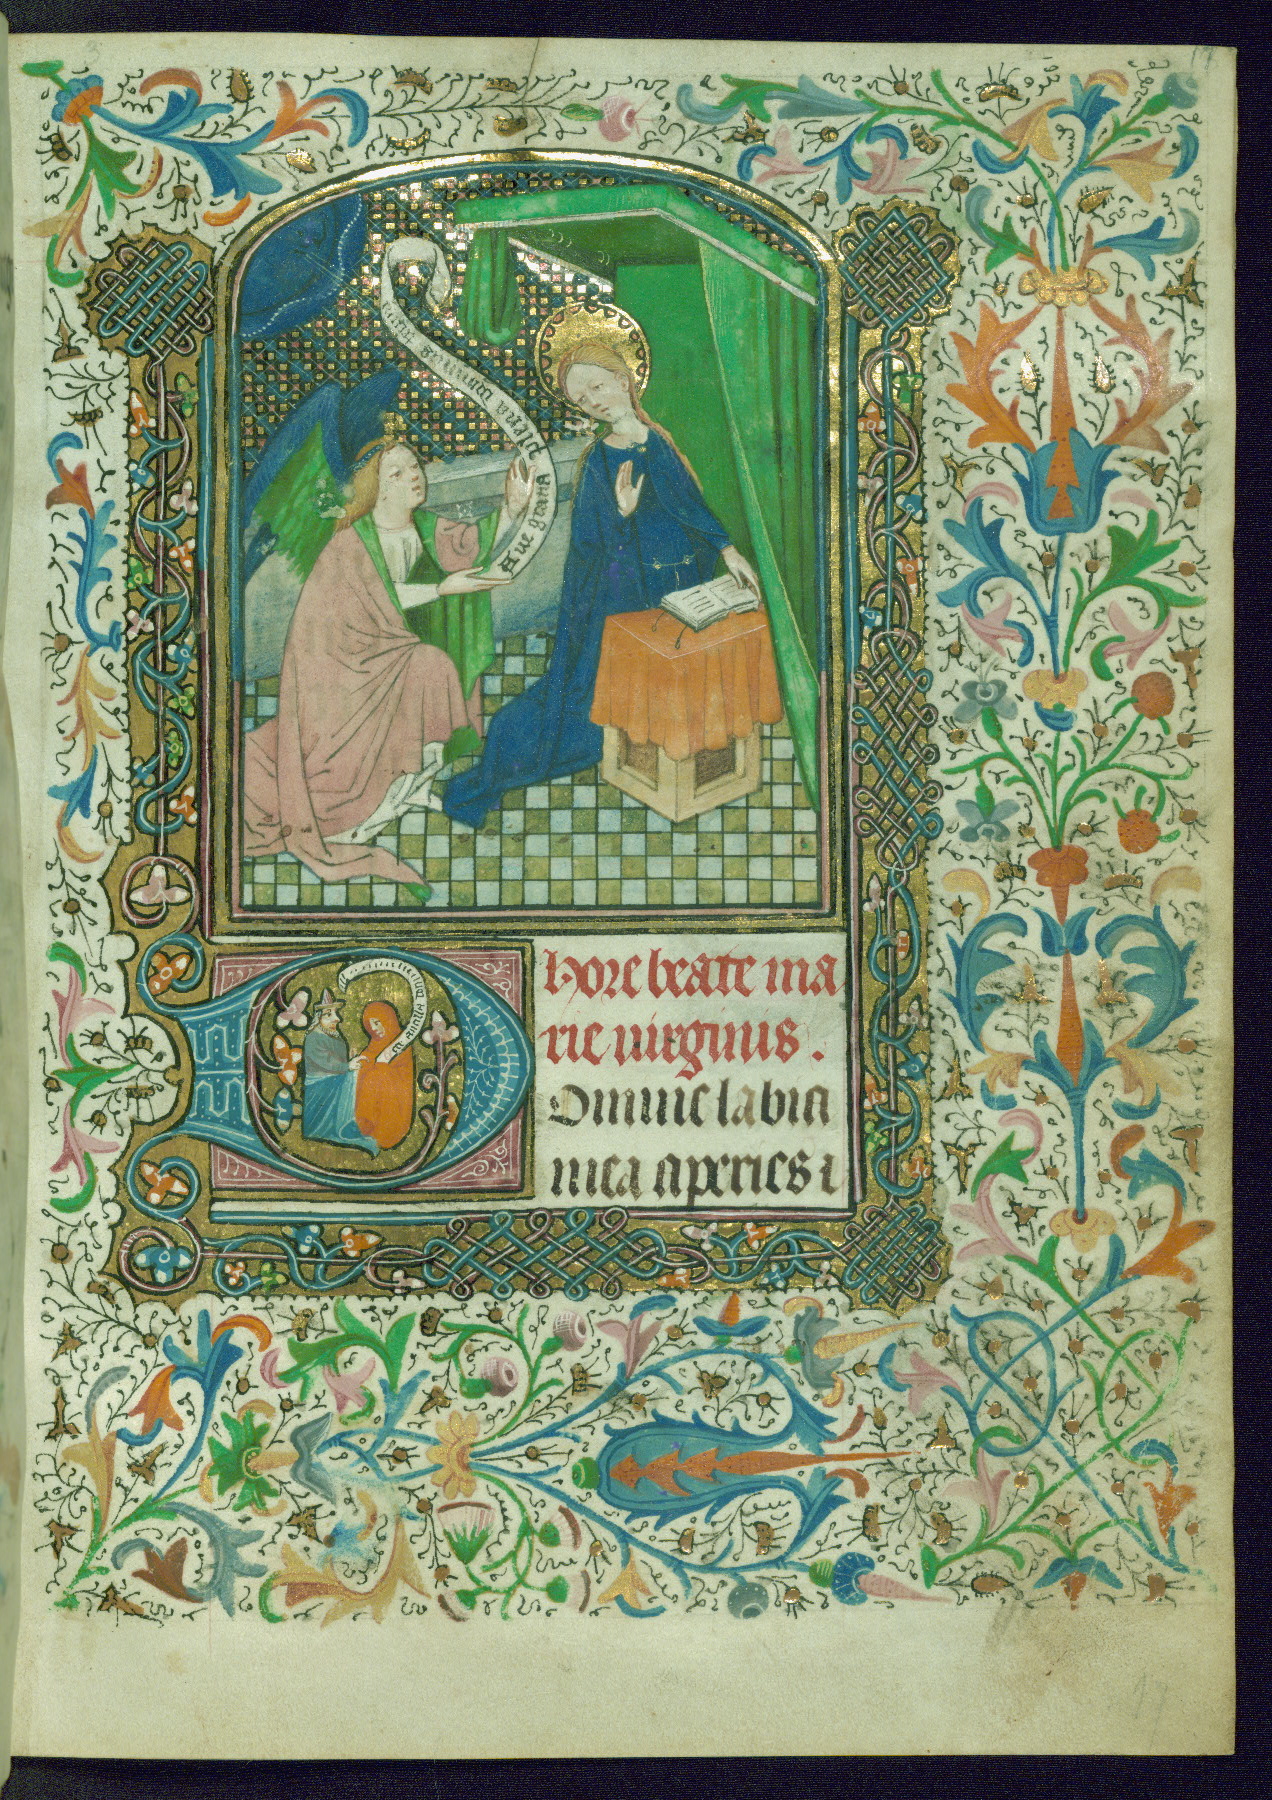 Aue gratia plena dominus tecu
hore beate ma
rie uirginis .
Domine labia
mea aperies i